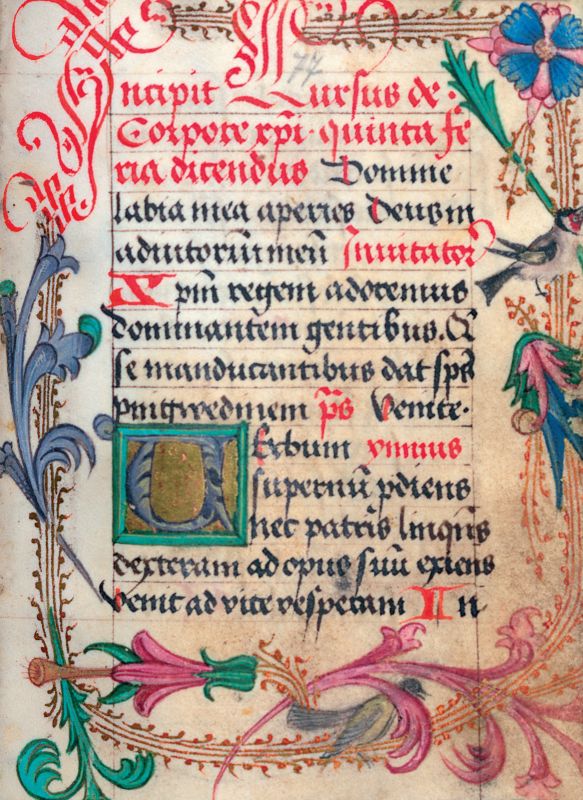 77
Incipit Cursus de
Corpore xpi · quinta fe
ria dicendus Domine
labia mea aperies Deus in
adiutoriū meū Inuitator
Xpm regem adoremus
dominantem gentibus. Q
se manducantibus dat sps
pinguedinem ps Venite.
Uerbum ymnus
supernū pdiens
nec patris linqus
dexteram ad opus suū exiens
Venit ad vite vesperam In